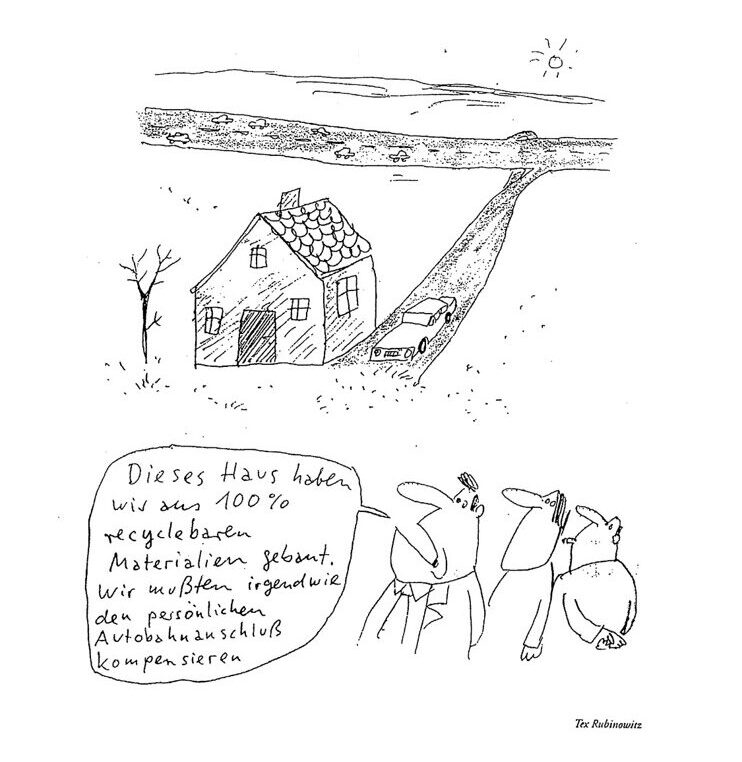 Dieses Haus haben
wir aus 100%
recyclebaren
Materialien gebaut.
Wir mußten irgendwie
den persönlichen
Autobahnanschluß
kompensieren
Tex Rubinowitz